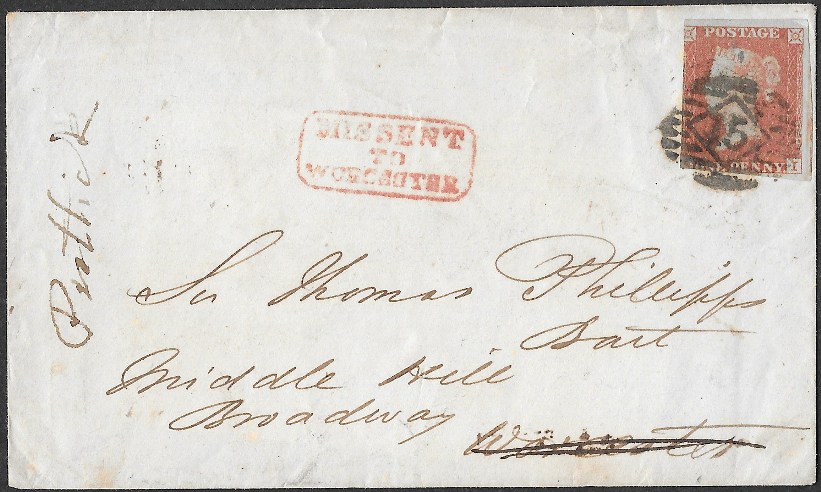 POSTAGE
25
PENNY
I
MISSENT
TO
WORCESTER
Sir Thomas Phillipps
Bart
Middle Hill
Broadway
Worcester